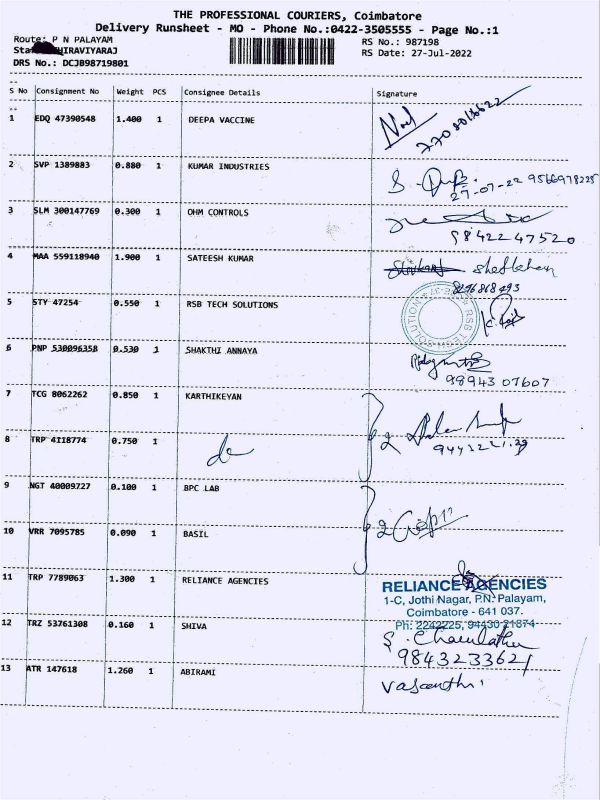 THE PROFESSIONAL COURIERS, Coimbatore
Delivery Runsheet - MO - Phone No.:0422-3505555 - Page No.:1
Route: P N PALAYAM
RS No.: 987198
HIRAVIYARAJ
RS Date: 27-Jul-2022
DRS No.: DCJB98719801
S No Consignment No Weight PCS Consignee Details Signature
1 EDQ 47390548 1.400 1 DEEPA VACCINE
2 SVP 1389883 0.880 1 KUMAR INDUSTRIES
27-07-22 9566978225
3 SLM 300147769 0.300 1 OHM CONTROLS
98422 47520
4 MAA 559118940 1.900 1 SATEESH KUMAR
5 STY 47254 0.550 1 RSB TECH SOLUTIONS
RSB TECH SOLUTION
6 PNP 530096358 0.530 1 SHAKTHI ANNAYA
98943 07607
7 TCG 8062262 0.850 1 KARTHIKEYAN
2
8 TRP 4118774 0.750 1 do
9 NGT 40009727 0.100 1 BPC LAB
2
10 VRR 7095785 0.090 1 BASIL
11 TRP 7789063 1.300 1 RELIANCE AGENCIES
RELIANCE AGENCIES
1-C, Jothi Nagar, P.N. Palayam,
Coimbatore - 641 037.
Ph: 2242225, 94430 21874
12 TRZ 53761308 0.160 1 SHIVA
9843233621
13 ATR 147618 1.260 1 ABIRAMI
Vasanthi